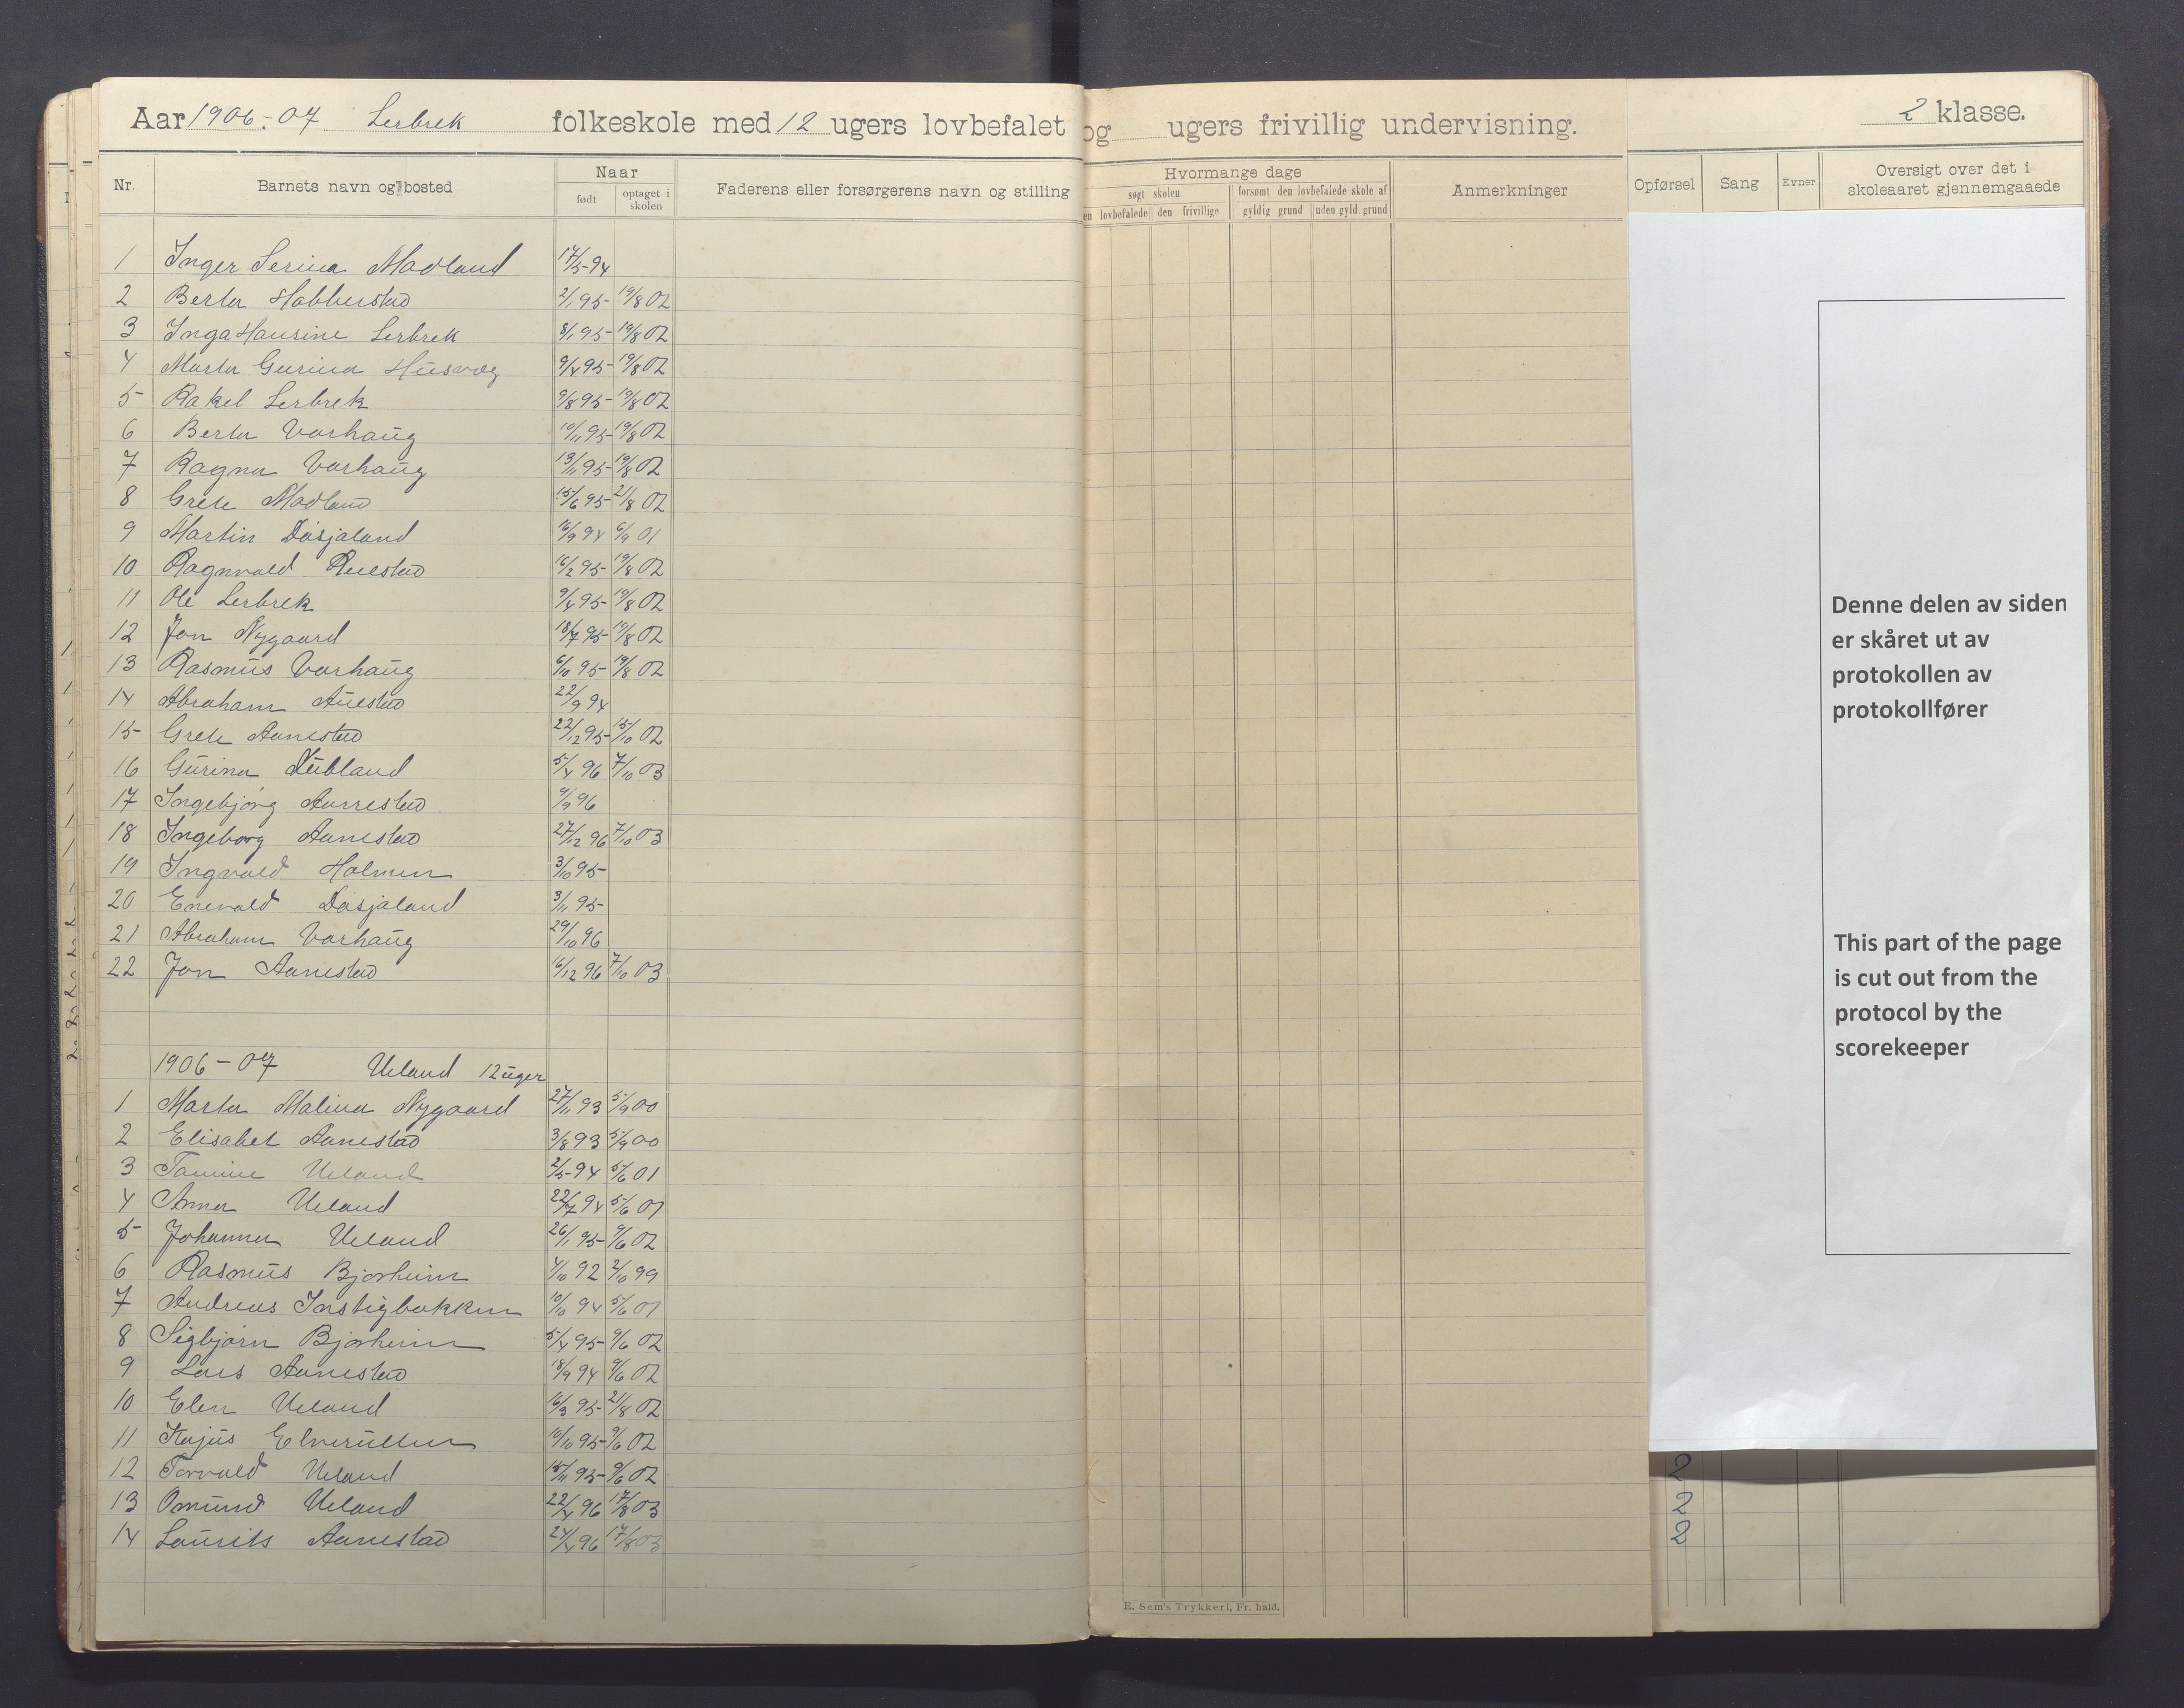 Aar 1906-07 Lerbrek folkeskole med 12 ugers lovbefalet og ugers frivillig undervisning. 2 klasse.
Nr. Barnets navn og bosted Naar født optaget i skolen Faderens eller forsørgerens navn og stilling Hvormange dage søgt skolen den lovbefalede den frivillige forsømt den lovbefalede skole af gyldig grund uden gyld. grund Anmerkninger Opførsel Sang Evner Oversigt over det i skoleaaret gjennemgaaede
1 Inger Serina Madland 17/5-94
2 Berta Hobberstad 2/1 95- 19/8 02
3 Inga Hansine Lerbrek 8/1 95- 19/8 02
4 Marta Gurina Husvæg 9/4 95- 19/8 02
5 Rakel Lerbrek 9/8 95- 19/8 02
6 Berta Varhaug 10/11 95- 19/8 02
7 Ragna Varhaug 13/11 95- 19/8 02
8 Grete Madland 15/6 95- 21/8 02
9 Martin Dåsjaland 16/9 94 6/9 01
10 Ragnvald Ruestad 16/2 95- 19/8 02
11 Ole Lerbrek 9/4 95- 19/8 02
12 Jon Nygaard 18/7 95- 19/8 02
13 Rasmus Varhaug 6/10 95- 19/8 02
14 Abraham Auestad 22/9 94
15 Grete Aanestad 22/12 95- 15/10 02
16 Gurina Dubland 5/4 96 7/10 03
17 Ingebjørg Aarrestad 9/9 96
18 Ingeborg Aanestad 27/12 96 7/10 03
19 Ingvald Holmen 3/10 95-
20 Enevald Dasjaland 3/11 95-
21 Abraham Varhaug 29/10 96
22 Jon Aanestad 16/12 96 7/10 03
1906-07 Ueland 12 uger
1 Marta Malina Nygaard 27/11 93 5/9 00
2 Elisabet Aanestad 3/8 93 5/9 00
3 Tamine Ueland 2/5-94 5/6 01
4 Anna Ueland 22/7 94 5/6 01
5 Johanna Ueland 26/1 95- 9/6 02
6 Rasmus Bjorheim 4/10 92 2/10 99
7 Andreas Instigbakken 10/10 94 5/6 01
8 Sigbjørn Bjorheim 5/4 95- 9/6 02
9 Lars Aanestad 18/9 94 9/6 02
10 Elen Ueland 16/3 95- 21/8 02
11 Kajus Elverullen 10/10 95- 9/6 02
12 Torvald Ueland 15/11 95- 9/6 02
13 Omund Ueland 22/4 96 17/8 03
14 Laurits Aanestad 24/4 96 17/8 03
2
2
2
Denne delen av siden
er skåret ut av
protokollen av
protokollfører
This part of the page
is cut out from the
protocol by the
scorekeeper
E. Sem's Trykkeri, Fr. hald.